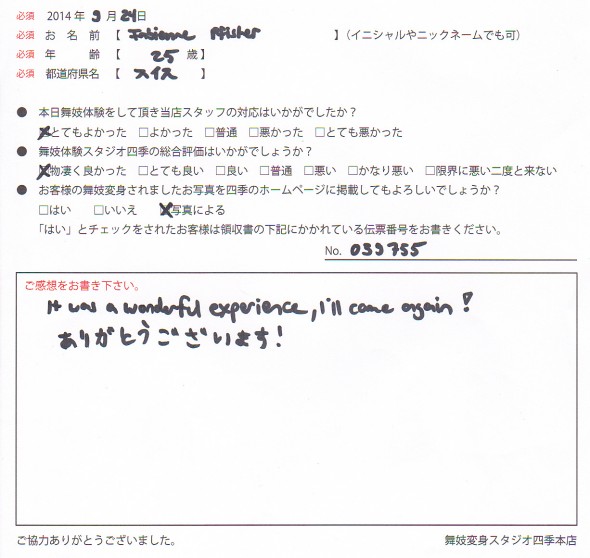 必須 2014年 9月24日
必須 お名前【 Fabienne Pfister 】(イニシャルやニックネームでも可)
必須 年齢【 25 歳】
必須 都道府県名【 スイス 】
● 本日舞妓体験をして頂き当店スタッフの対応はいかがでしたか?
☒とてもよかった □よかった □普通 □悪かった □とても悪かった
● 舞妓体験スタジオ四季の総合評価はいかがでしょうか?
☒物凄く良かった □とても良い □良い □普通 □悪い □かなり悪い □限界に悪い二度と来ない
● お客様の舞妓変身されましたお写真を四季のホームページに掲載してもよろしいでしょうか?
□はい □いいえ ☒写真による
「はい」とチェックをされたお客様は領収書の下記にかかれている伝票番号をお書きください。
No. 039755
ご感想をお書き下さい。
It was a wonderful experience, I'll come again!
ありがとうございます!
ご協力ありがとうございました。 舞妓変身スタジオ四季本店